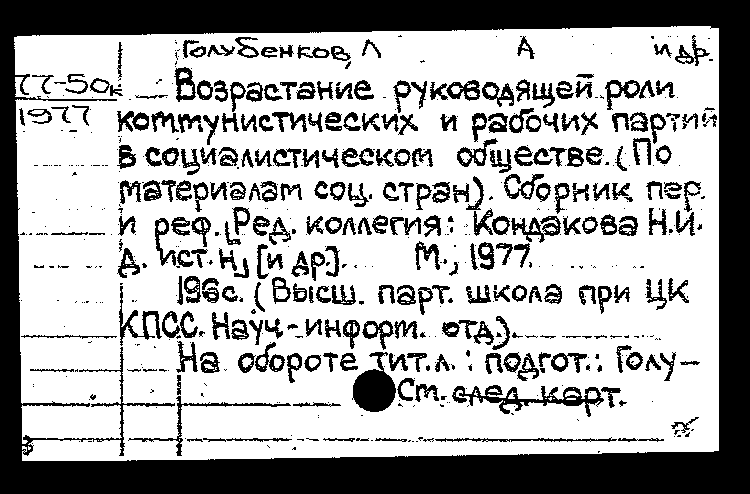 Голубенков, Л А и др.
77-50к Возрастание руководящей роли
1977 коммунистических и рабочих партий
в социалистическом обществе. (По
материалам соц. стран). Сборник пер.
и реф. [Ред. коллегия: Кондакова Н.И.
д. ист. н.] [и др.]. М., 1977.
196с. (Высш. парт. школа при ЦК
КПСС. Науч.-информ. отд.).
На обороте тит.л.: подгот.: Голу-
См. след. карт.